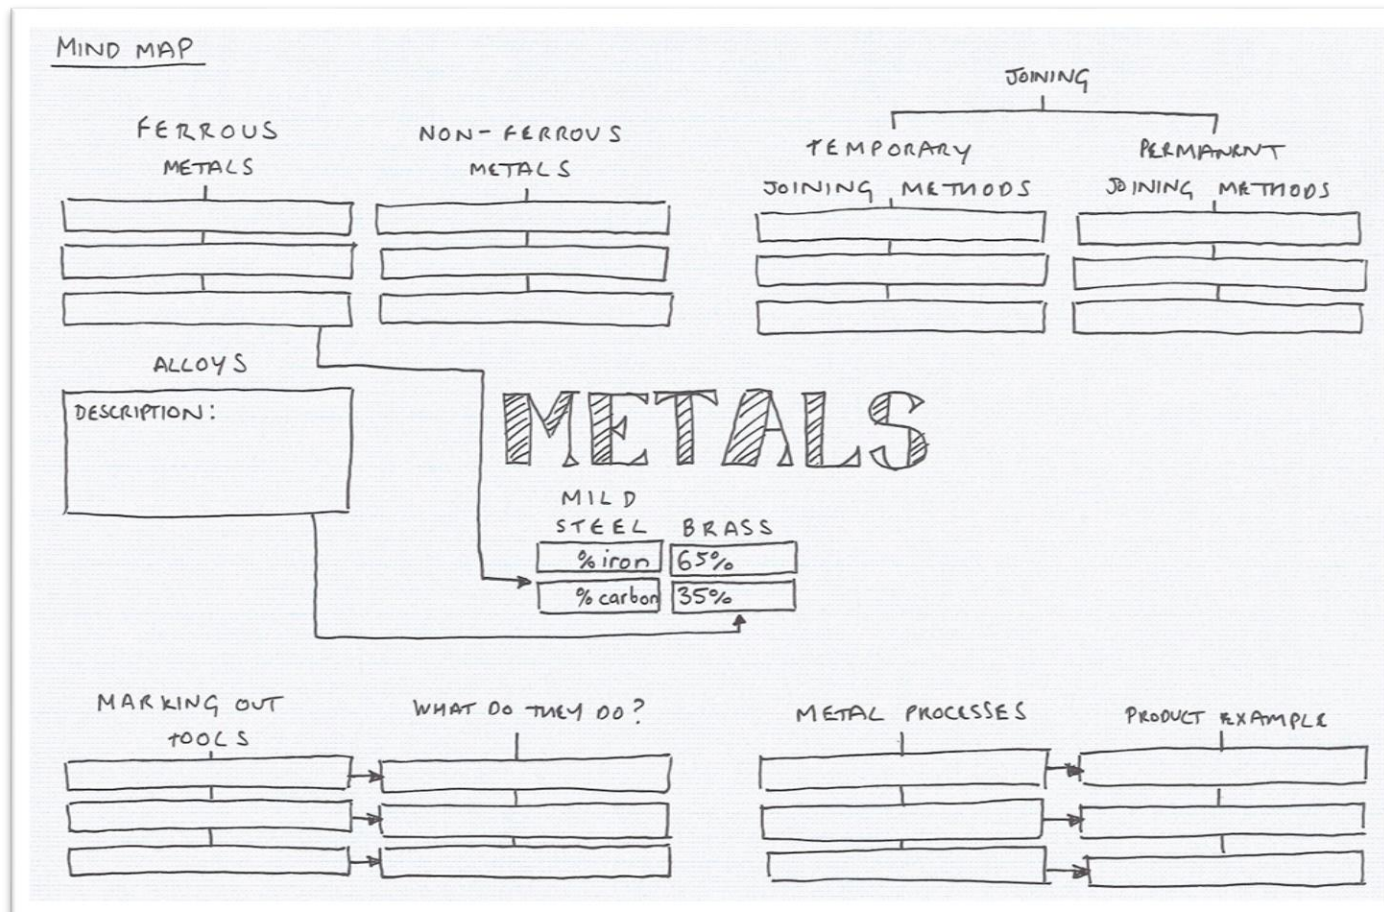 MIND MAP
FERROUS
METALS
NON-FERROUS
METALS
JOINING
TEMPORARY
JOINING METHODS
PERMANENT
JOINING METHODS
ALLOYS
DESCRIPTION:
METALS
MILD
STEEL
BRASS
% iron
65%
% carbon
35%
MARKING OUT
TOOLS
WHAT DO THEY DO?
METAL PROCESSES
PRODUCT EXAMPLE